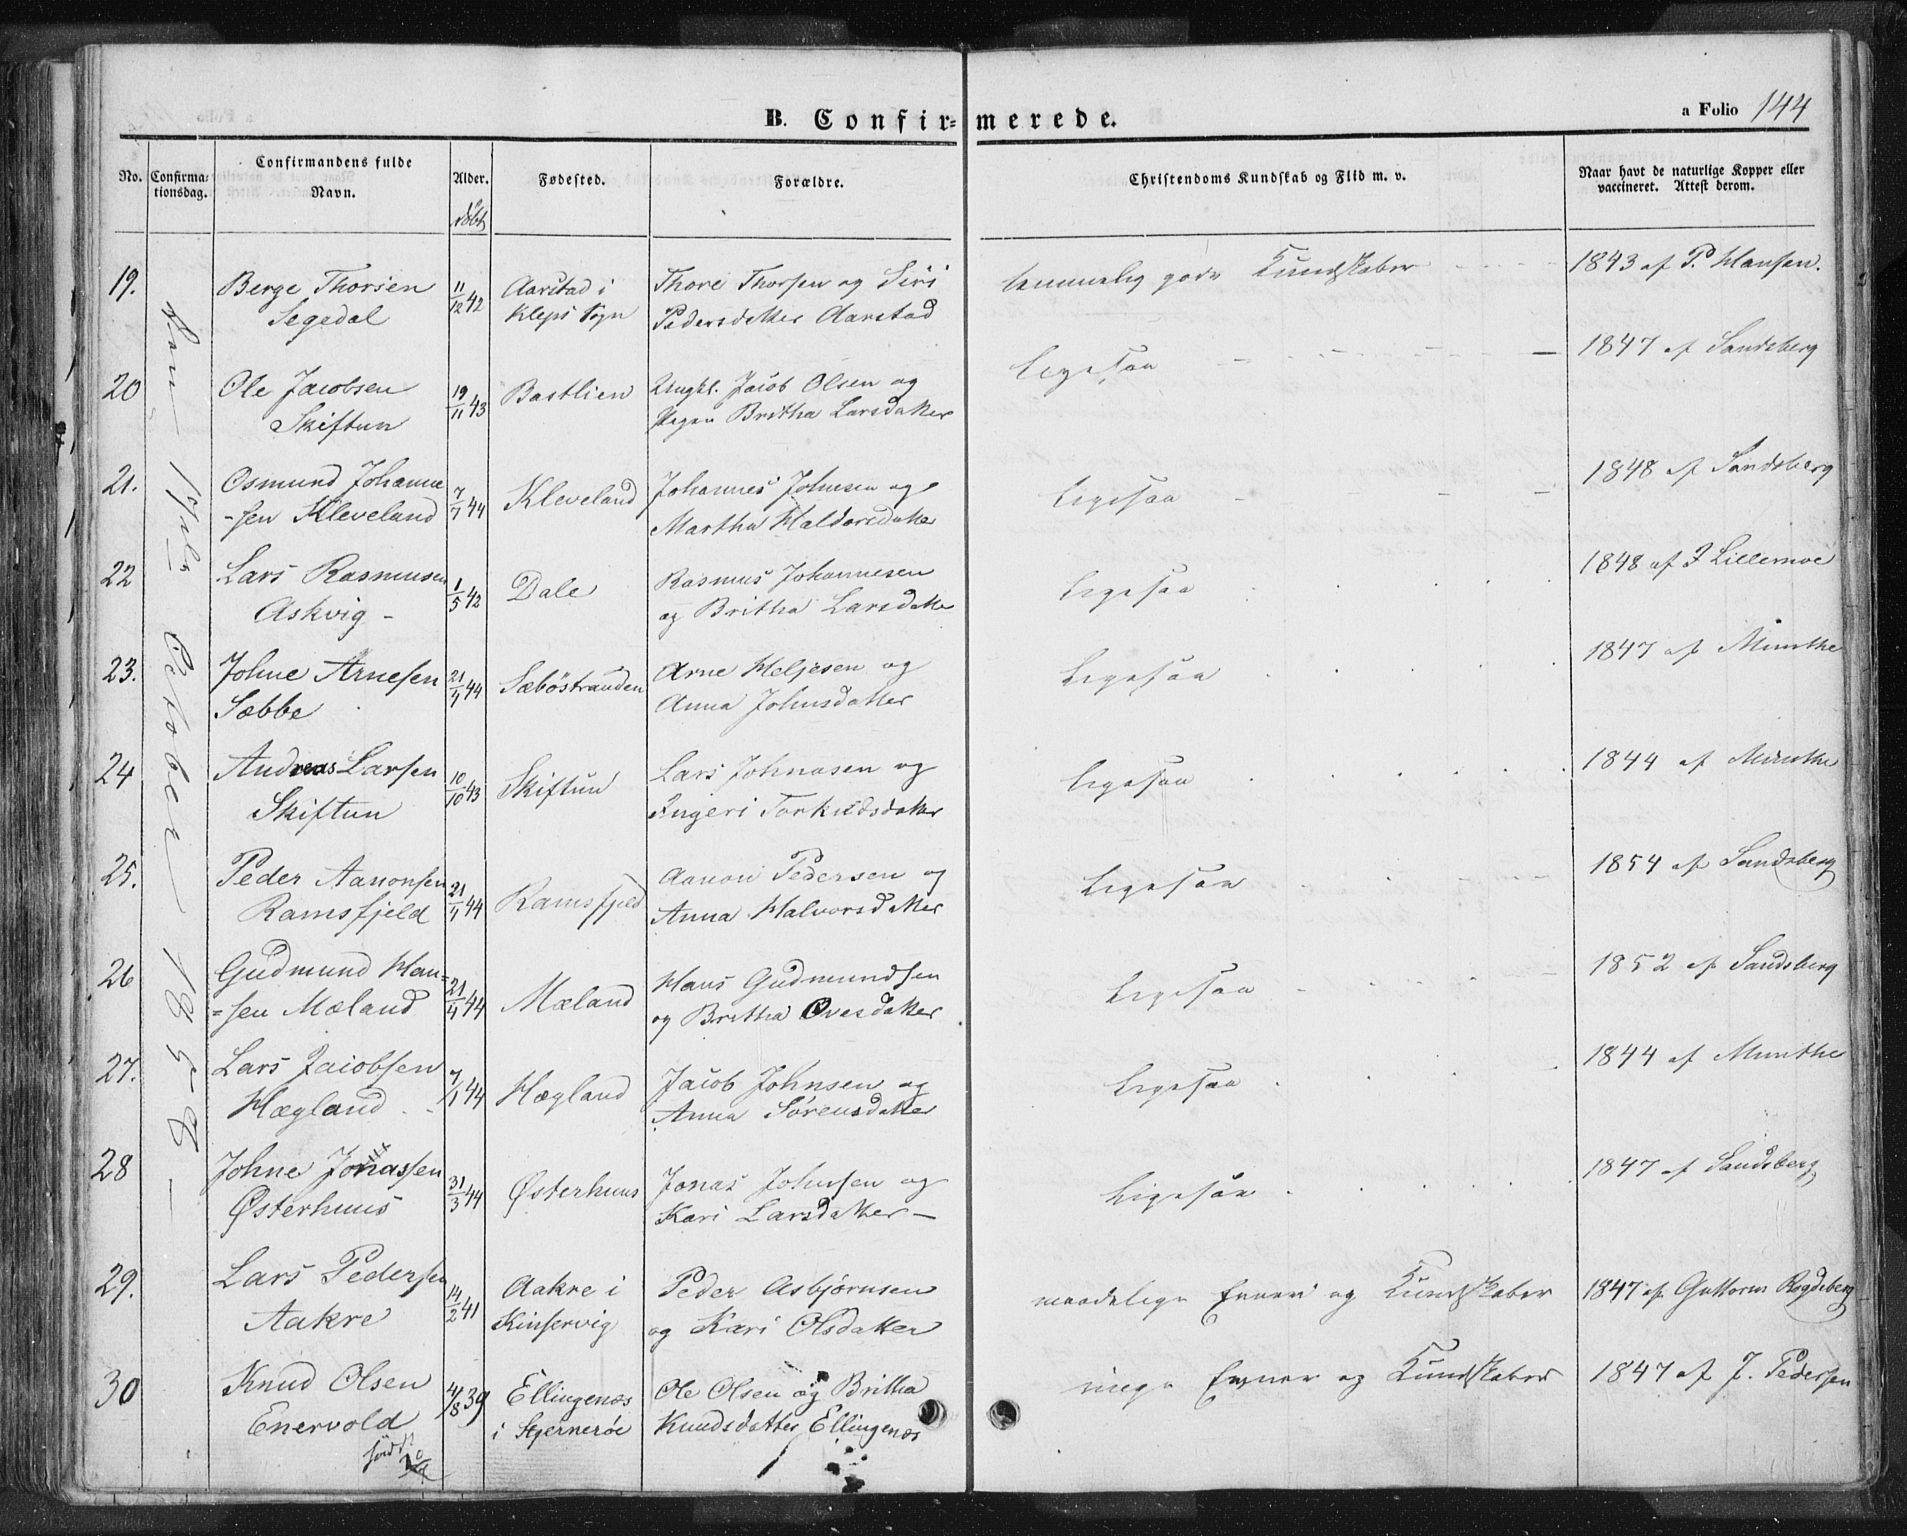 B. Confirmerede.
a Folio 144
No.
Confirmationsdag.
Confirmandens fulde Navn.
Alder.
Fødested.
Forældre.
Christendoms Kundskab og Flid m. v.
Naar havt de naturlige Kopper eller vaccineret. Attest derom.
døbt
den 17de October 1858
19. Berge Thorsen 11/12 42 Aarstad i Thore Thorsen og Siri temmelig gode Kundskaber 1843 af P. Hansen.
Segedal Kleps Sogn Pedersdatter Aarstad
20 Ole Jacobsen 19/11 43 Bastlien Ungkl. Jacob Olsen og Ligesaa 1847 af Sandsberg
Skiftun Pigen Britha Larsdatter
21. Osmund Johanne 7/1 44 Kleveland Johannes Johnsen og Ligesaa 1848 af Sandsberg
-sen Kleveland Martha Haldorsdatter
22 Lars Rasmusen 1/5 42 Dale Rasmus Johannesen Ligesaa 1848 af J Lillemoe
Askvig - og Britha Larsdatter
23. Johne Arnesen 21/4 44 Sæböstranden Arne Heljesen og Ligesaa 1847 af Munthe
Sæbbe Anna Johnsdatter
24 Andreas Larsen 10/10 43 Skiftun Lars Johnasen og Ligesaa 1844 af Munthe
Skiftun Ingeri Torkildsdatter
25. Peder Aanonsen 21/4 44 Ramsfjeld Aanon Pedersen og Ligesaa 1854 af Sandsberg
Ramsfjeld Anna Halvorsdatter
26 Gudmund Han= 21/4 44 Mæland Hans Gudmundsen Ligesaa 1852 af Sandsberg
=sen Mæland og Britha Ovesdatter
27. Lars Jacobsen 7/1 44 Hægland Jacob Johnsen og Ligesaa 1844 af Munthe
Hægland Anna Sörensdatter
28 Johne Jonassen 31/3 44 Østerhuus Jonas Johnsen og Ligesaa 1847 af Sandsberg
Østerhuus Kari Larsdatter -
29. Lars Pedersen 14/2 41 Aakre i Peder Asbjørnsen maadelige Evner og Kundskaber 1847 af Guttorm Rogdeberg
Aakre Kinservig og Kari Olsdatter
30 Knud Olsen 4/8 39 Ellingenæs Ole Olsen og Britha ringe Evner og Kundskaber 1847 af J. Pedersen
Enervold i Stjernerøe Knudsdatter Ellingenæs
född